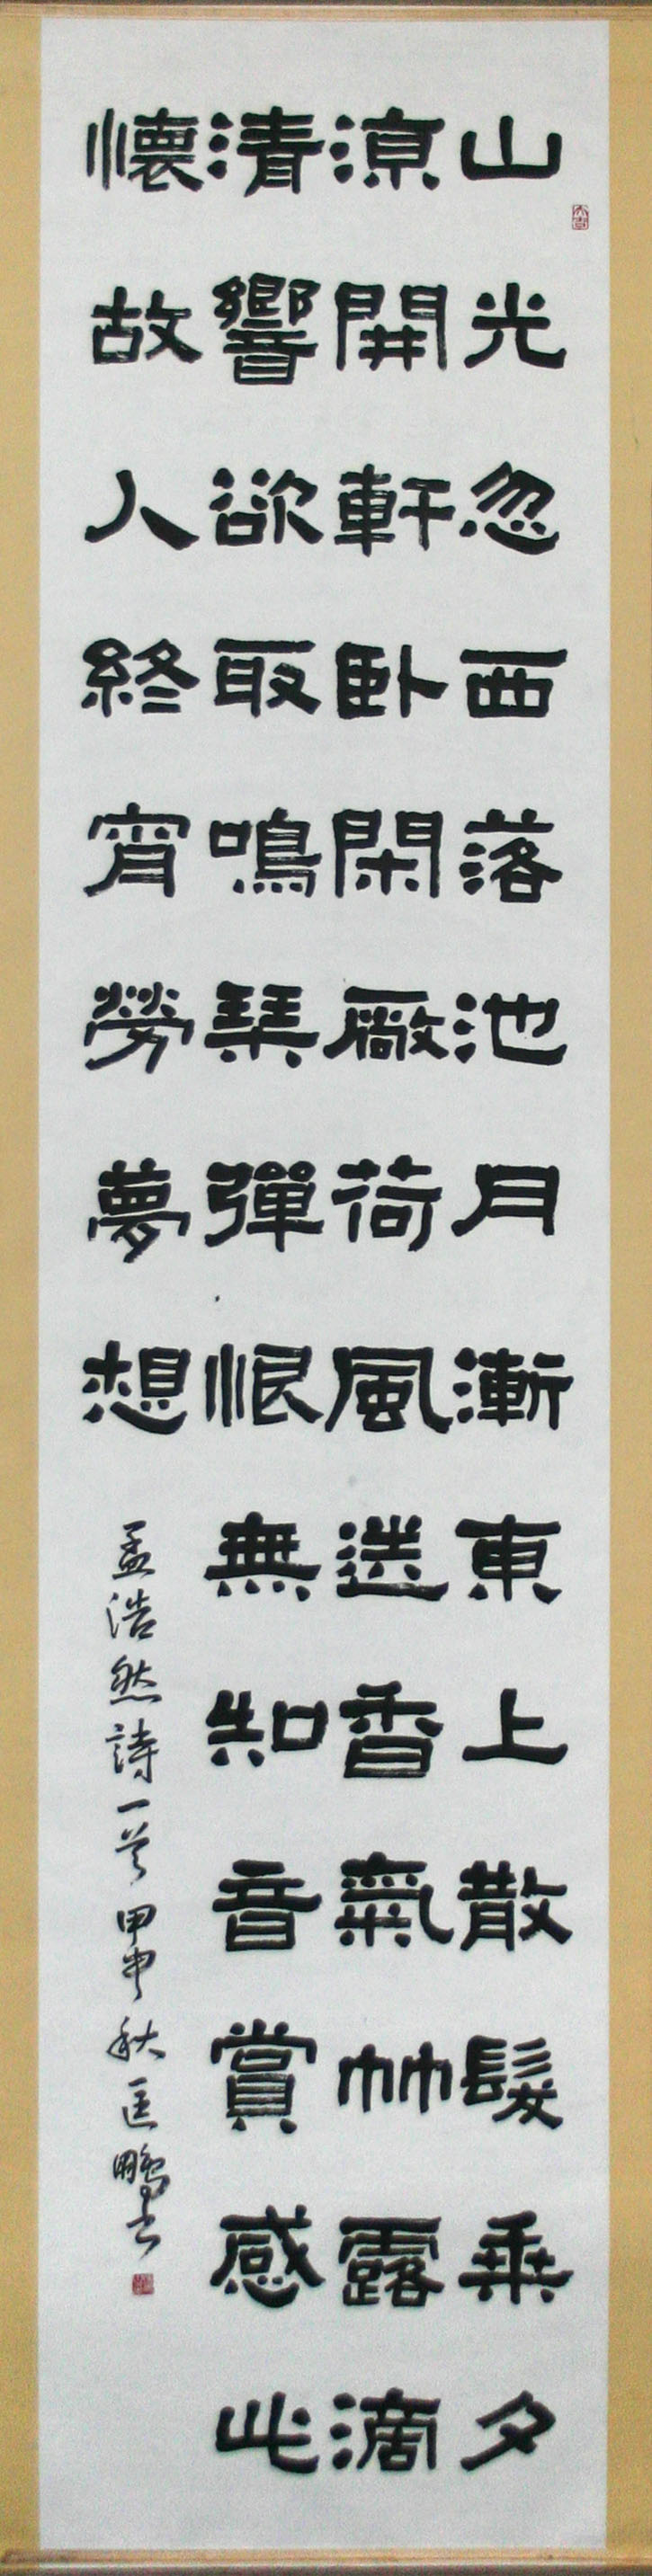 山光忽西落池月漸東上散髮乗夕
涼開軒卧閑厰荷風送香氣竹露滴
清響欲取鳴琴彈恨無知音賞感此
懷故人終宵勞夢想
孟浩然詩一首甲申秋匡鵬书